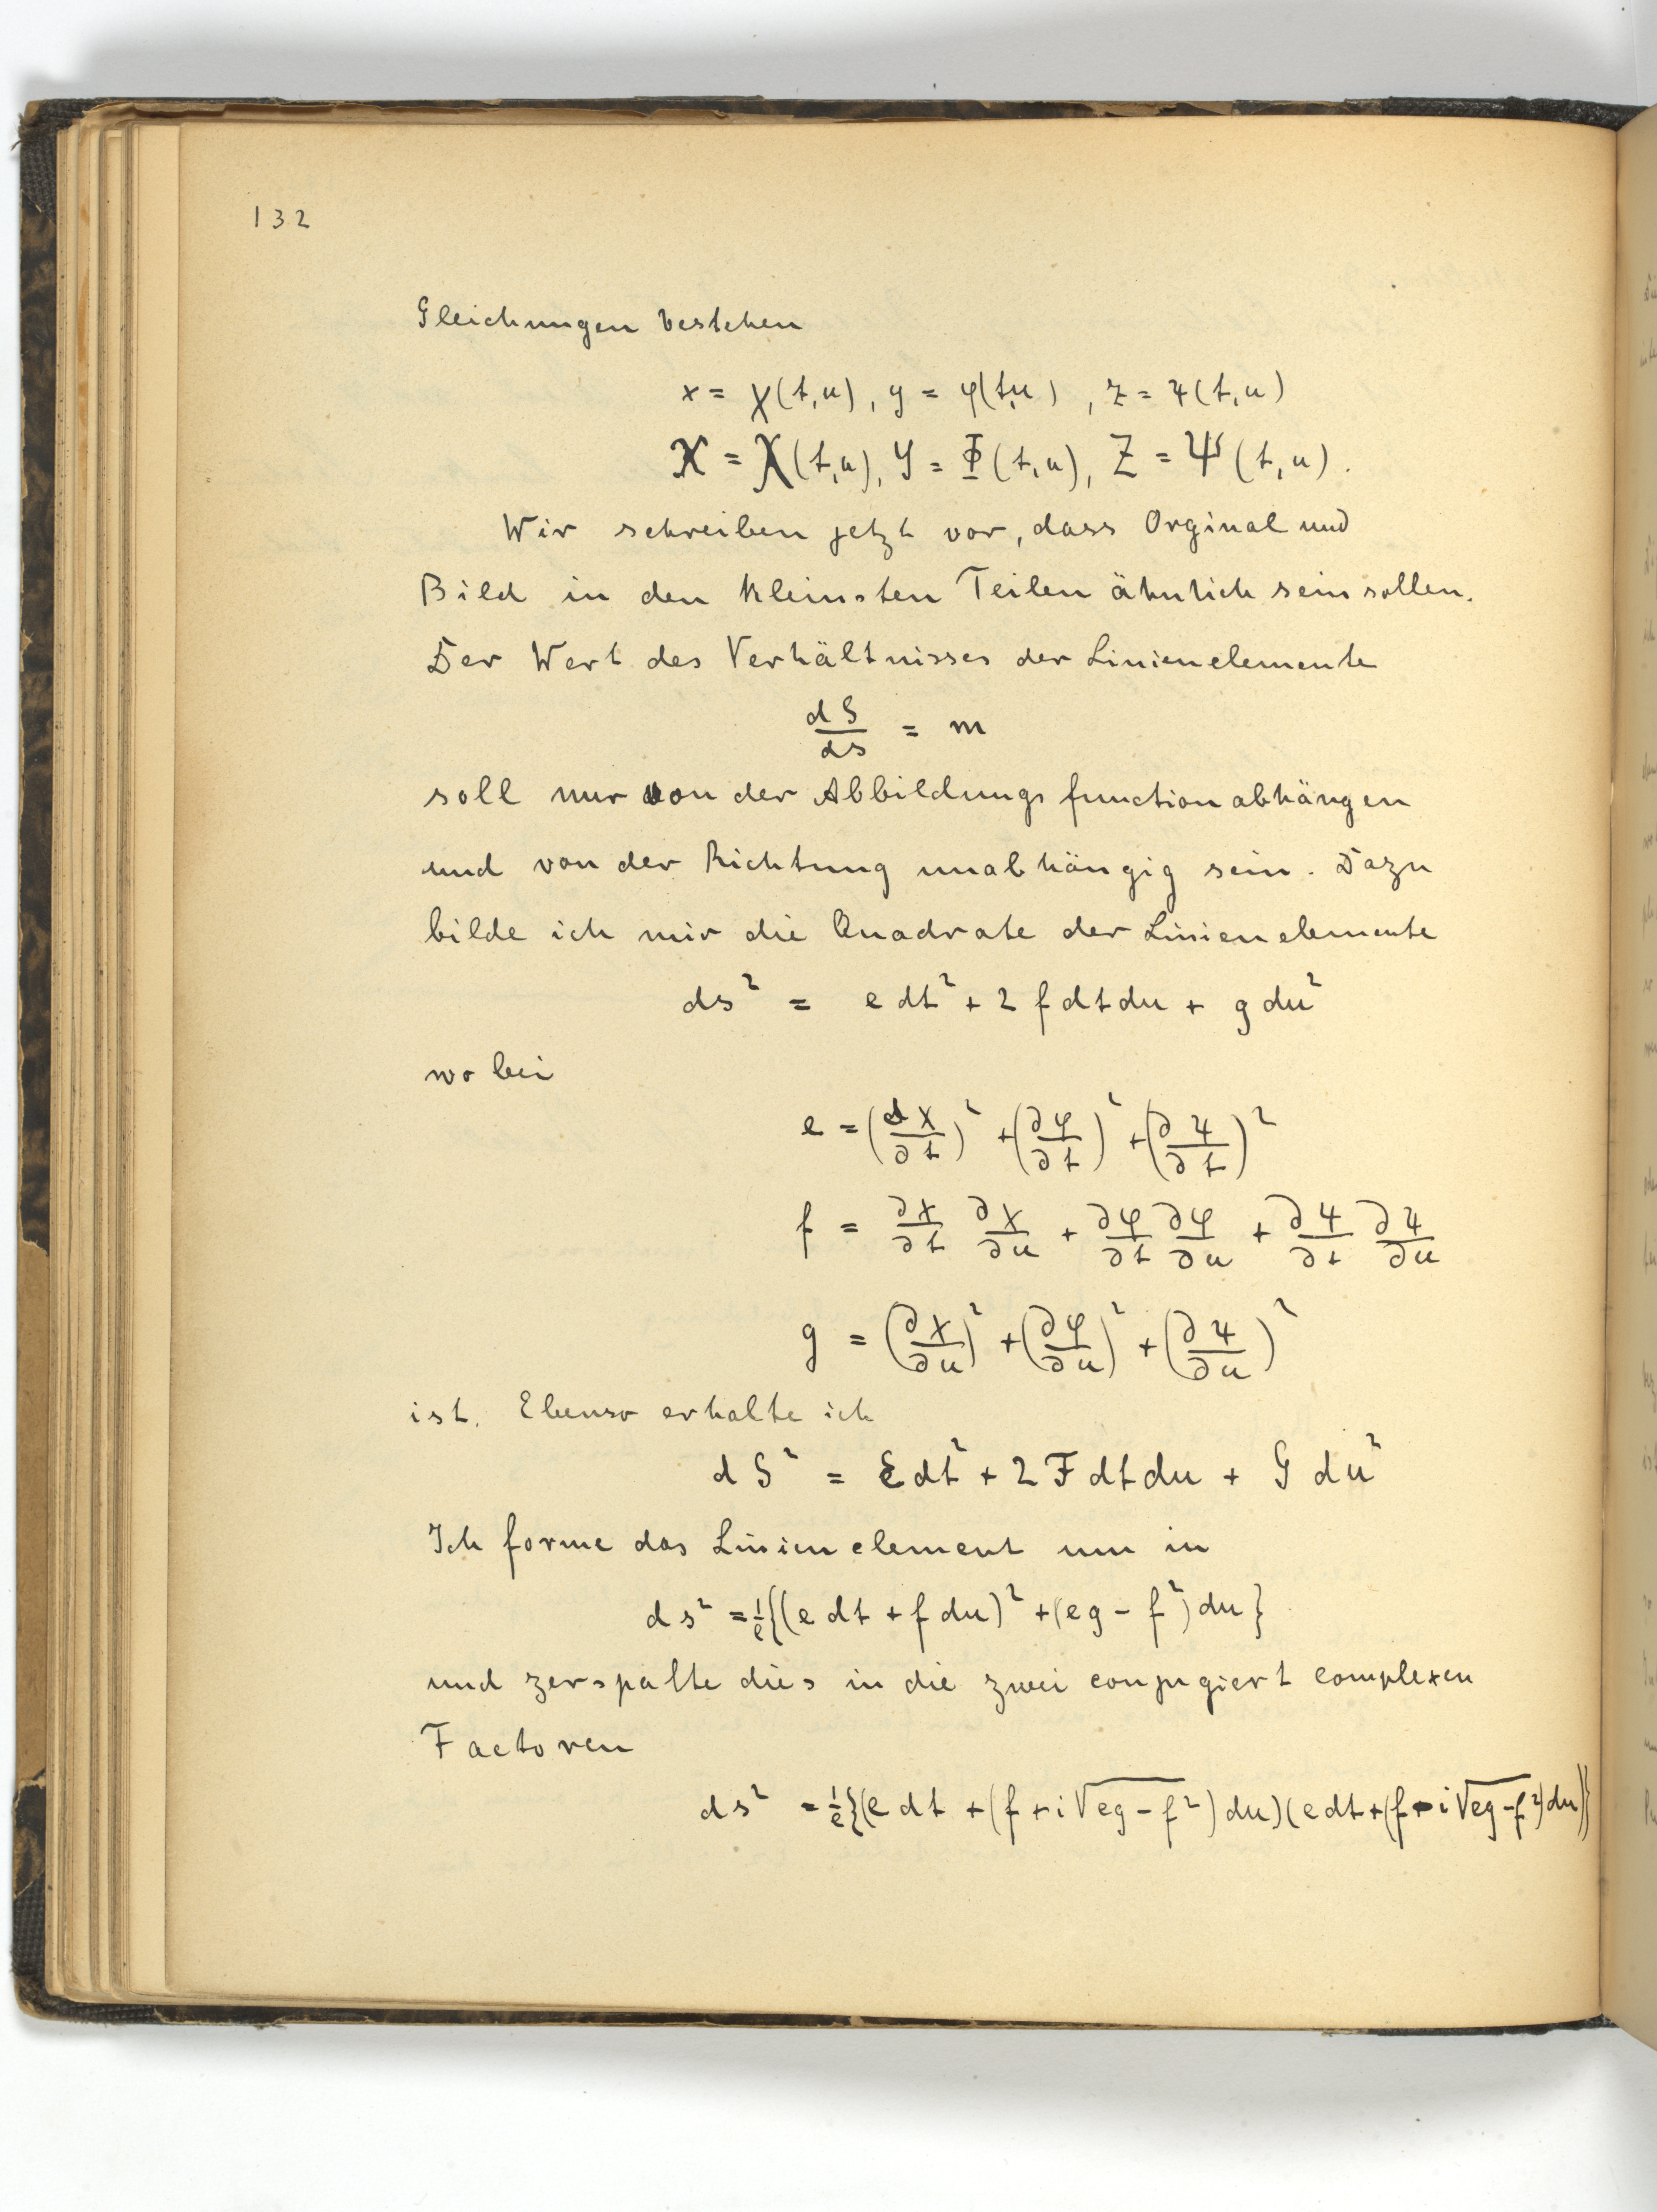 132
Gleichungen bestehen
x = χ(t,u), y = φ(t,u), z = ψ(t,u)
X = X(t,u), Y = Φ(t,u), Z = Ψ(t,u).
Wir schreiben jetzt vor, dass Orginal und
Bild in den kleinsten Teilen ähnlich sein sollen.
Der Wert des Verhältnisses der Linienelemente
dS/ds = m
soll nur von der Abbildungsfunction abhängen
und von der Richtung unabhängig sein. Dazu
bilde ich mir die Quadrate der Linienelemente
ds² = e dt² + 2 f dt du + g du²
wobei
e = (∂χ/∂t)² + (∂φ/∂t)² + (∂ψ/∂t)²
f = ∂χ/∂t ∂χ/∂u + ∂φ/∂t ∂φ/∂u + ∂ψ/∂t ∂ψ/∂u
g = (∂χ/∂u)² + (∂φ/∂u)² + (∂ψ/∂u)²
ist. Ebenso erhalte ich
dS² = E dt² + 2 F dt du + G du²
Ich forme das Linienelement um in
ds² = 1/e {(e dt + f du)² + (eg - f²) du}
und zerspalte dies in die zwei conjugiert complexen
Factoren
ds² = 1/e {(e dt + (f + i √eg - f²) du)(e dt + (f - i √eg - f²) du)}